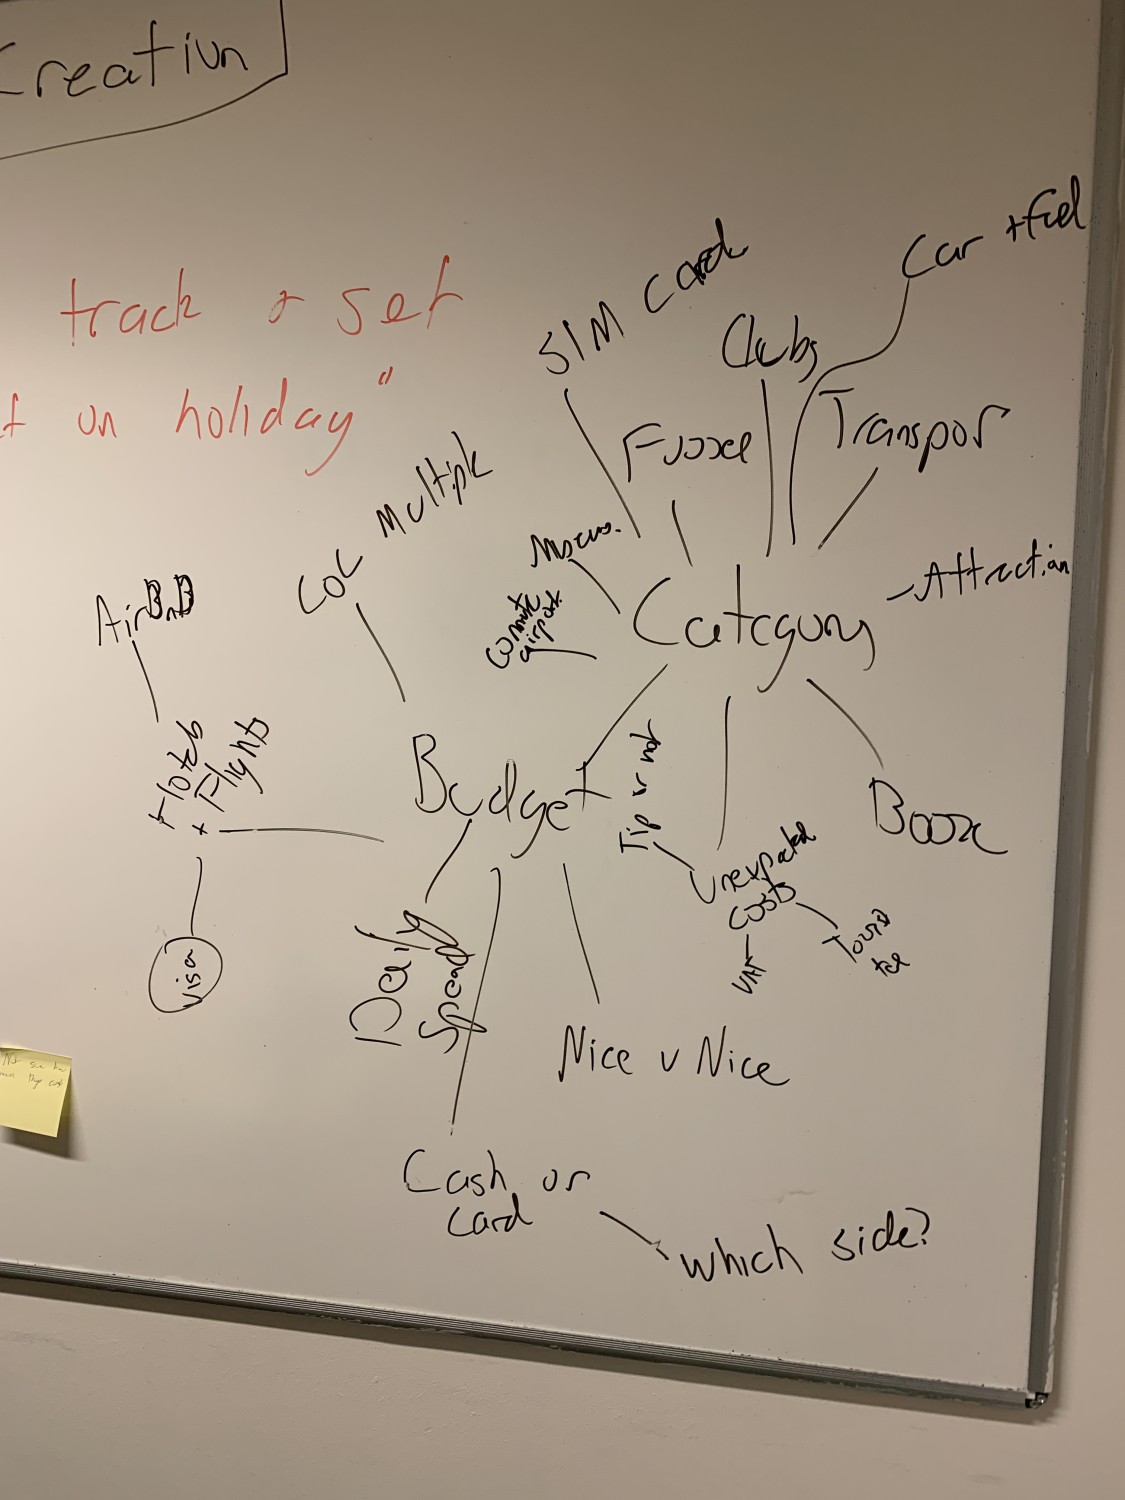 Creation
track & set
on holiday"
Car + Fuel
SIM Card
Clubs
Transpor
Multiple
CoL
Museums.
Attraction
AirBnB
Commute
airport
Category
Hotels
Flights
+
Budget
Tip or not
Booze
Unexpected
Costs
Visa
Daily
Spend
VAT
Tourist
Nice v Nice
Cash or
Card
which side?